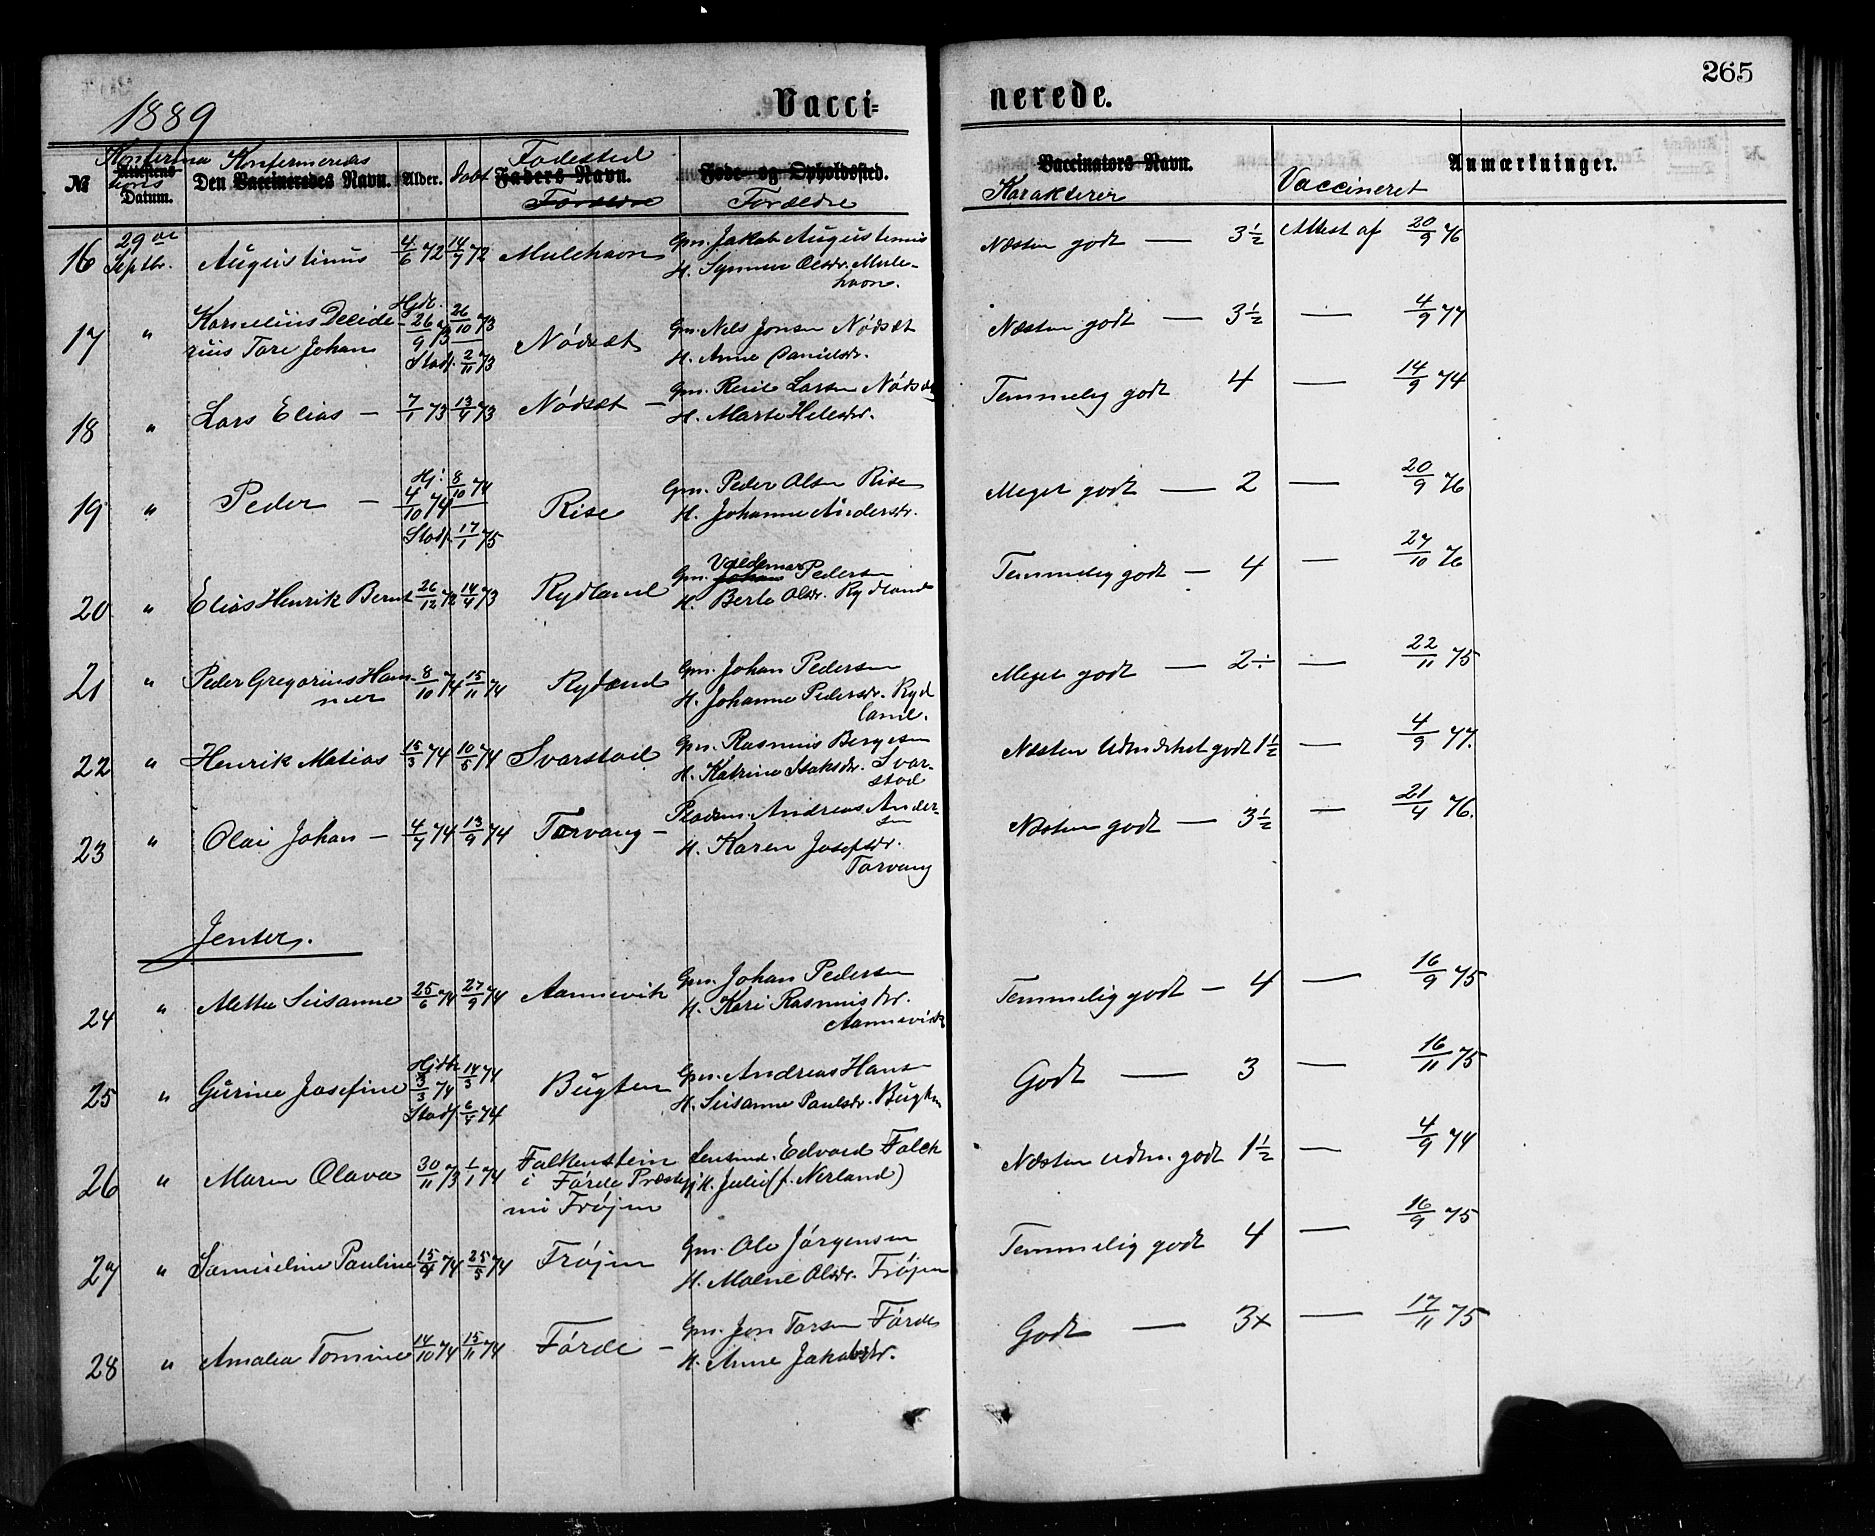 265
1889
Vacci-
nerede.
№
Konfirma
Attestens
tions
Datum.
Konfirmeredes
Den Vaccineredes Navn.
Alder.
Døbt
Fødested
Faders Navn.
Forældre
Føde- og Opholdssted.
Forældre
Vaccinators Navn.
Karakterer
Vaccineret
Anmærkninger.
16 29de Septbr. Augustinus 4/6 72 14/7 72 Mulehavn Gm. Jakob Augustinus Næsten godt — 3½ Attest af 20/9 76
H. Synneve Olsdr. Mule-
havn.
17 " Kornelius Decide Hjdt. 26/9 73 26/10 73 Nødset Gm. Nels Jonsen Nødset Næsten godt — 3½ — 4/9 77
rius Tore Johan Stadf. 2/11 73 H. Anne Danielsdr.
18 " Lars Elias — 7/1 73 13/4 73 Nødset — Gm. Larsen Nødset Temmelig godt 4 — 14/9 74
H. Marte
19 " Peder — Hj. 4/10 74 8/10 74 Rise Gm. Peder Olsen Rise Meget godt — 2 — 20/9 76
Stadf. 17/1 75 H. Johanne Andersdr.
20 " Elias Henrik Bernt 26/12 72 14/4 73 Rydland Gm. Johan Valdemar Pedersen Temmelig godt — 4 — 27/10 76
H. Berte Olsdr. Rydland
21 " Peder Gregorius Ham- 8/10 74 15/11 74 Rydland Gm. Johan Pedersen Meget godt — 2÷ — 22/11 75
mer H. Johanne Pedersdr. Ryd
land.
22 " Henrik Matias 15/3 74 10/5 74 Svarstad Gm. Rasmus Bergesen Næsten Udmerket godt 1½ — 4/9 77.
H. Katrine Isaksdr. Svar-
stad
23 " Olai Johan — 4/7 74 13/9 74 Torvang — Pladsm. Andreas Ander- Næsten godt — 3½ — 21/4 76.
sen
H. Karen Josefsdr.
Torvang
Jenter.
24 " Alette Susanne 25/6 74 27/9 74 Aannevik Gm. Johan Pedersen Temmelig godt — 4 — 16/9 75
H. Kari Rasmusdr.
Aannevik
25 " Gurine Josefine Hjdbt. 3/3 74 14/3 74 Bugten Gm. Andreas Hansen Godt — 3 — 16/11 75
Stadf. 6/4 74 H. Susanne Paulsdr. Bugten
26 " Maren Olava 30/11 73 1/1 74 Falkenstein Lensmd. Edvard Falck Næsten udm. godt 1½ — 4/9 74
i Førde Præstegj H. Julie (f. Nerland)
nu Frøjen
27 " Samueline Pauline 15/4 74 25/5 74 Frøjen Gm. Ole Jørgensen Temmelig godt 4 — 16/9 75
H. Malene Olsdr. Frøjen
28 " Amalia Tomine 14/10 74 15/11 74 Førde — Gm. Jon Larsen Førde Godt — 3x — 17/11 75
H. Anne Jakobsdr.